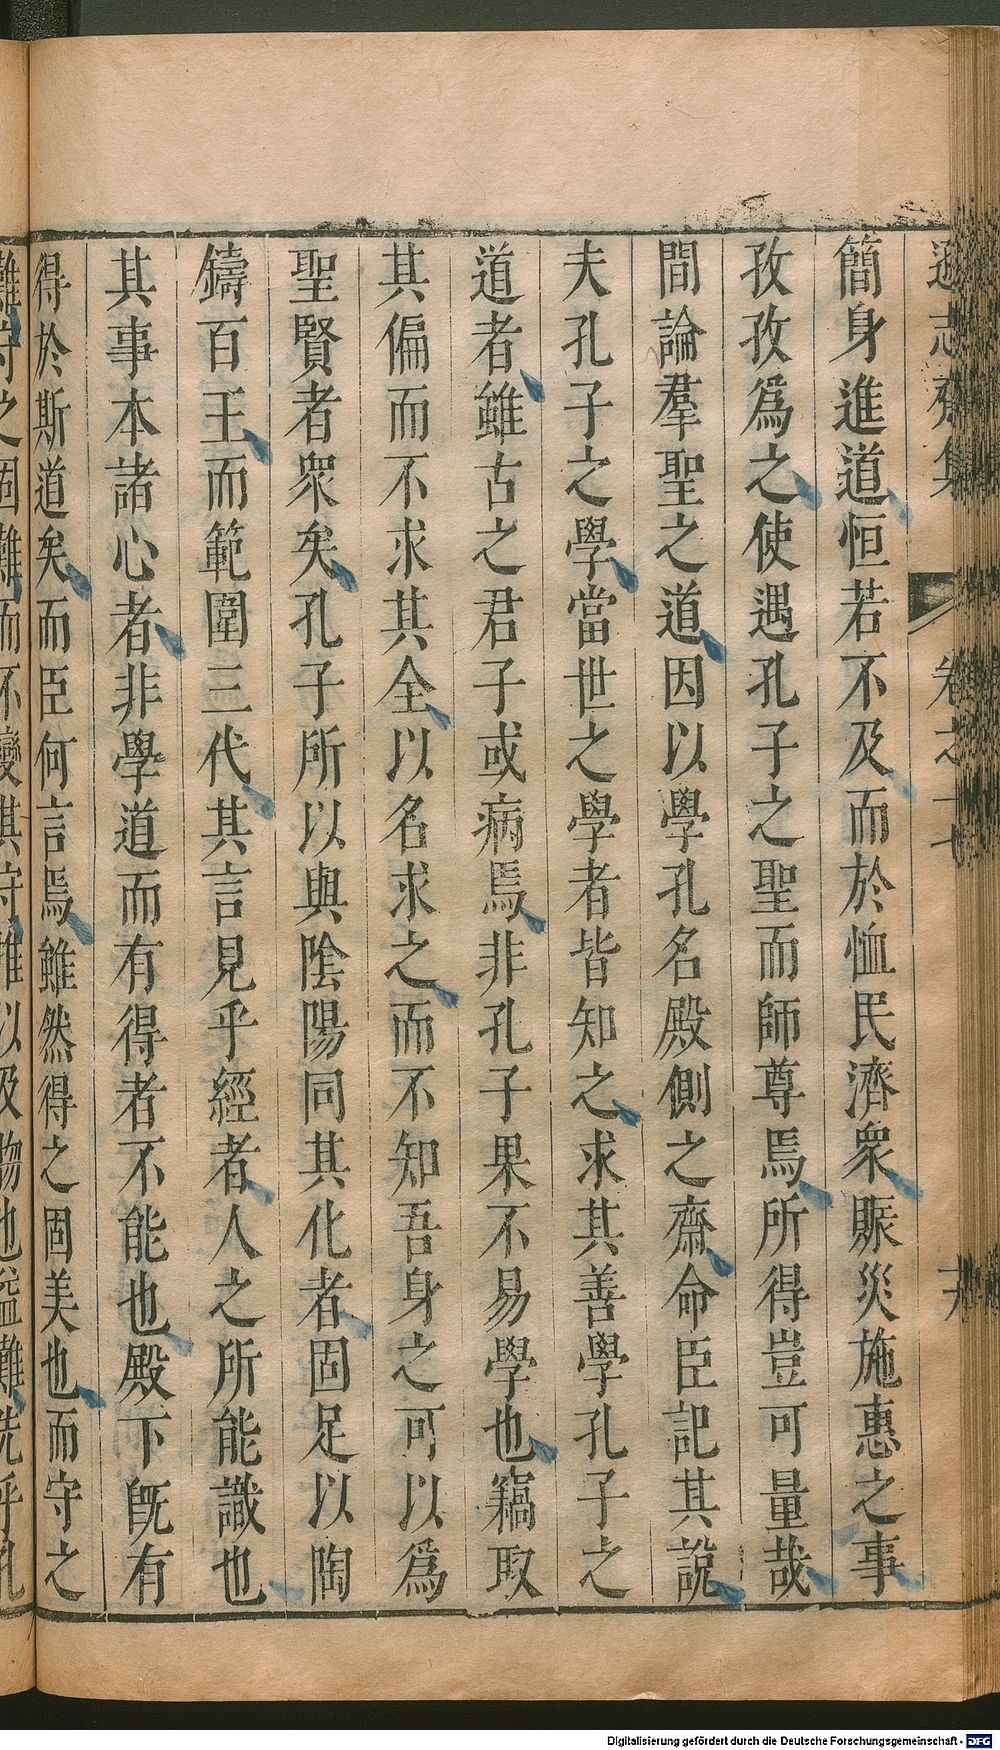 遜志齋集 卷之十七
簡身進道恒若不及而於恤民濟衆賑災施惠之事
孜孜爲之使遇孔子之聖而師尊焉所得豈可量哉
間論羣聖之道因以學孔名殿側之齋命臣記其說
夫孔子之學當世之學者皆知之求其善學孔子之
道者雖古之君子或病焉非孔子果不易學也竊取
其偏而不求其全以名求之而不知吾身之可以爲
聖賢者衆矣孔子所以與陰陽同其化者固足以陶
鑄百王而範圍三代其言見乎經者人之所能識也
其事本諸心者非學道而有得者不能也殿下旣有
得於斯道矣而臣何言焉雖然得之固美也而守之
難守之固難而不變其守推以及物也益難先乎孔
Digitalisierung gefördert durch die Deutsche Forschungsgemeinschaft - DFG